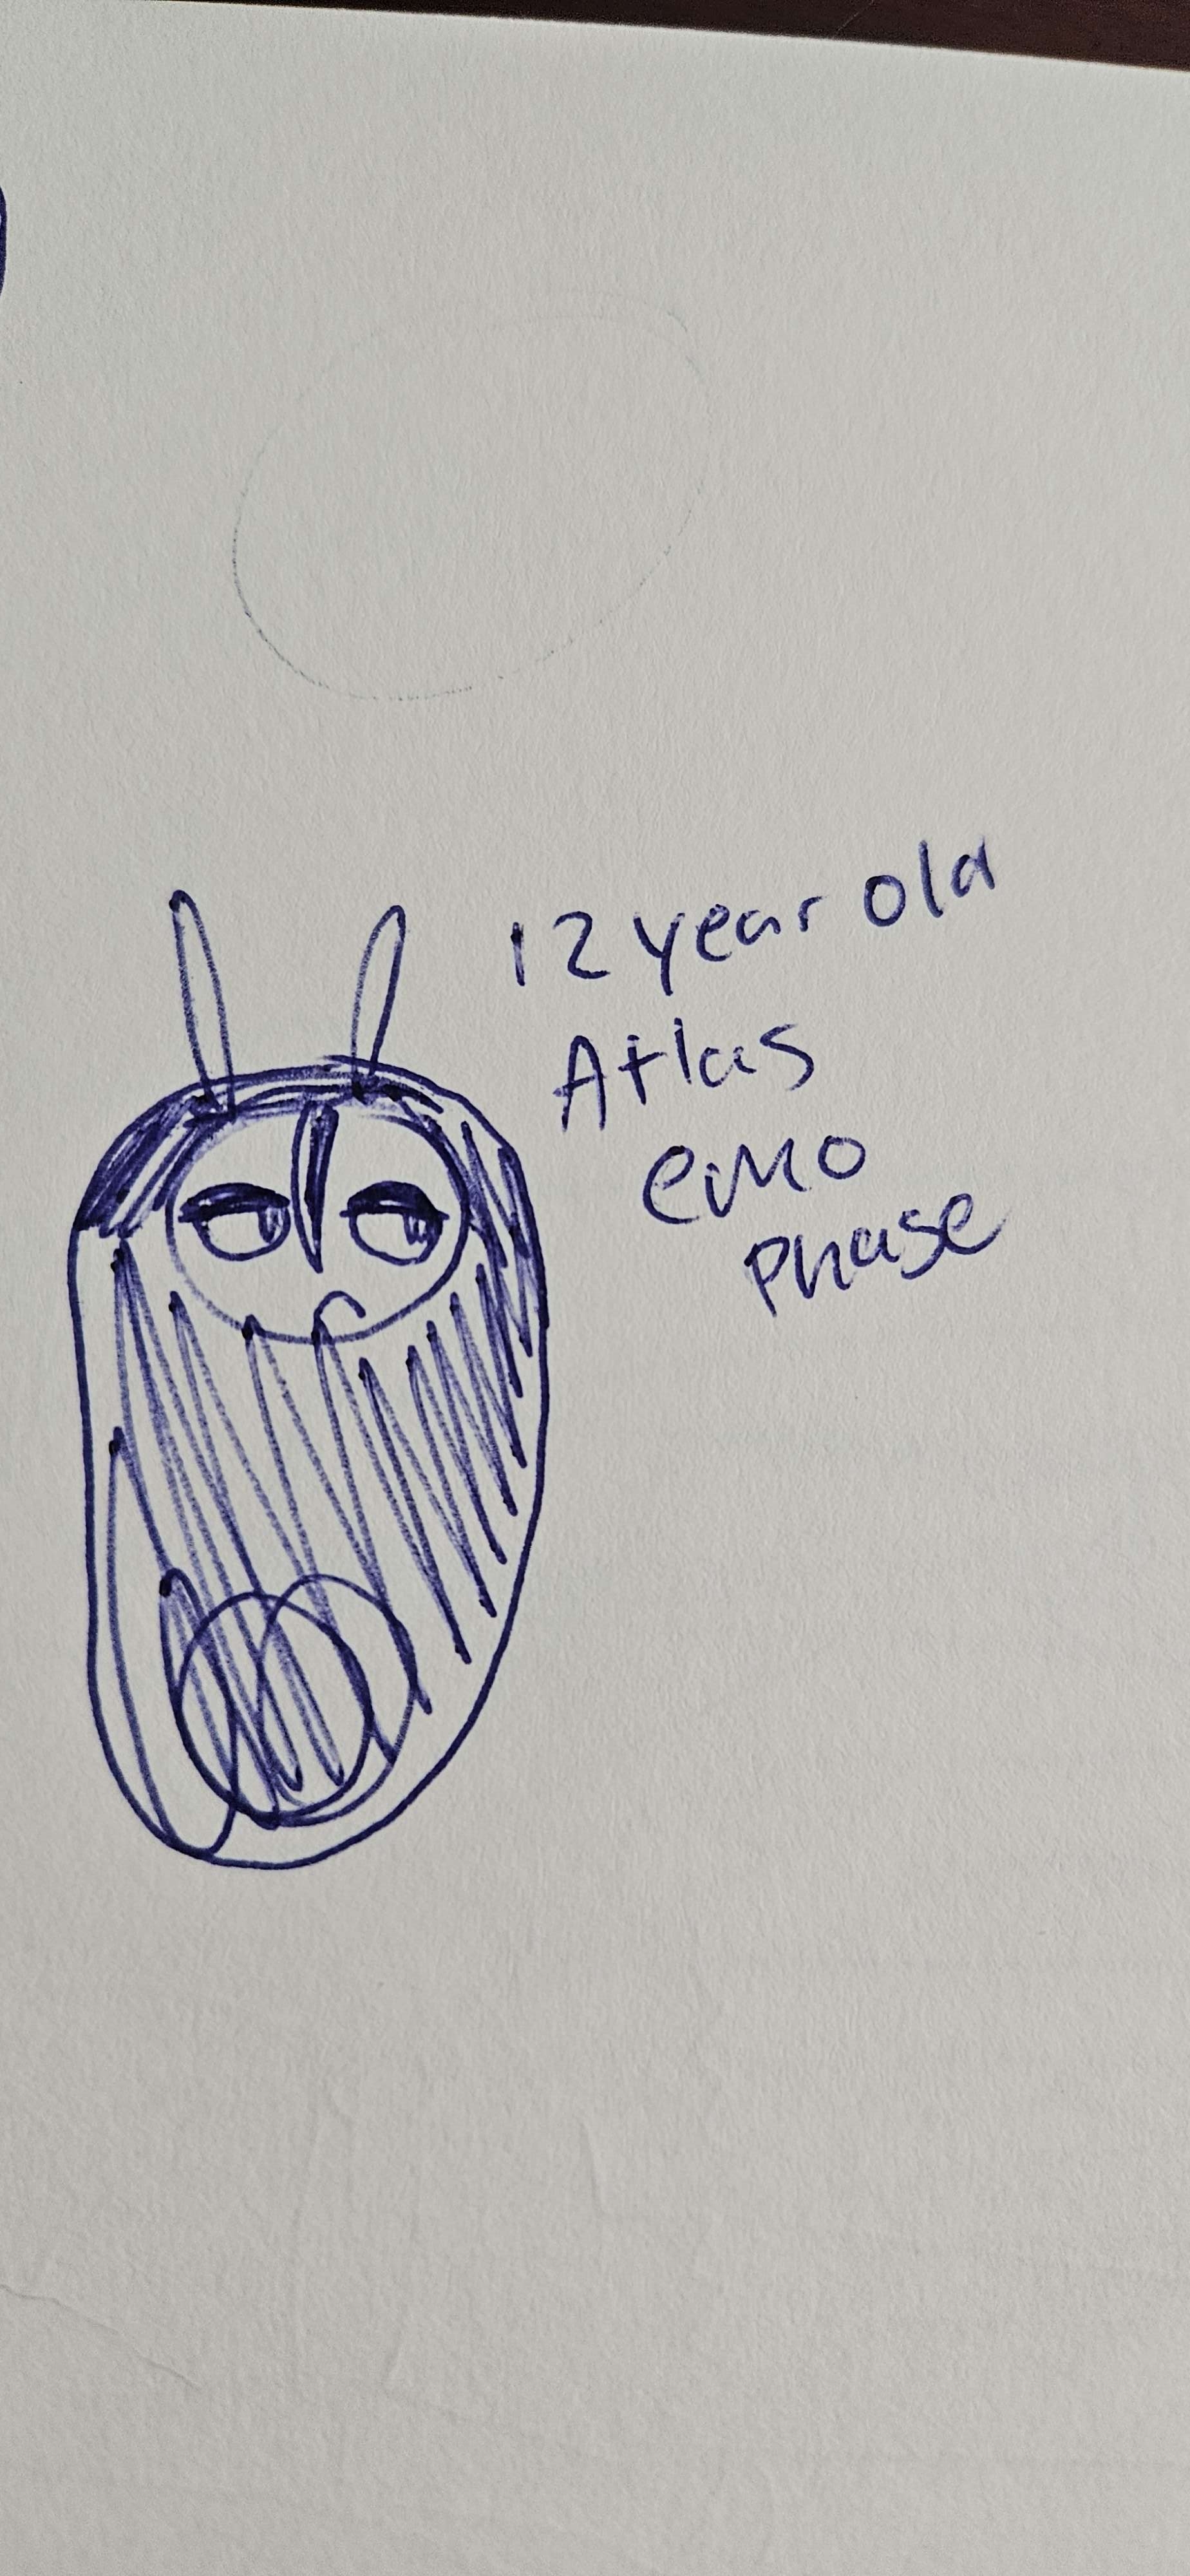 12 year old
Atlas
emo
phase